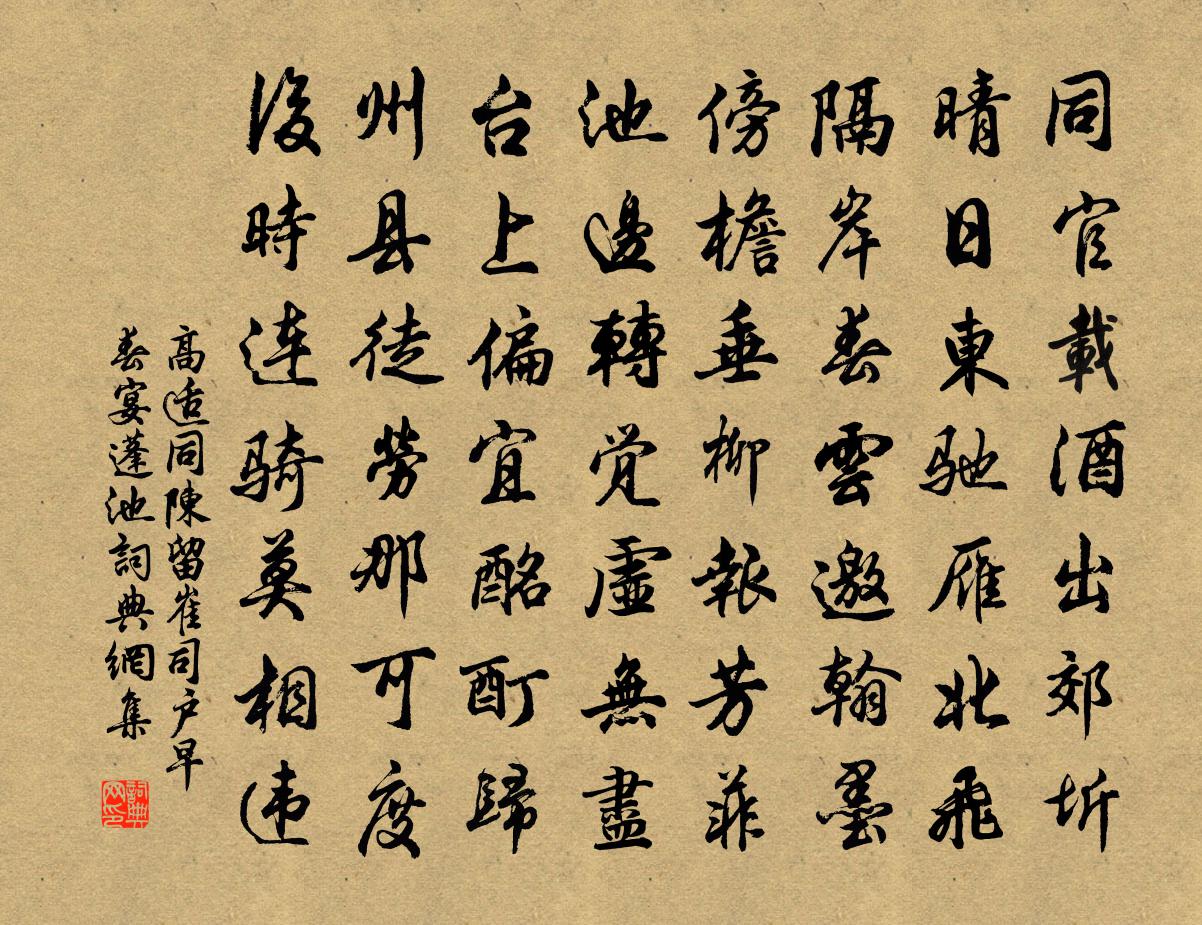 同官載酒出郊圻
晴日東驰雁北飛
隔岸春雲邀翰墨
傍檐垂柳報芳菲
池邊轉觉虛無盡
台上偏宜酩酊歸
州县徒勞那可度
後時连騎莫相违
高适同陳留崔司户早
春宴蓬池詞典網集
詞典网印